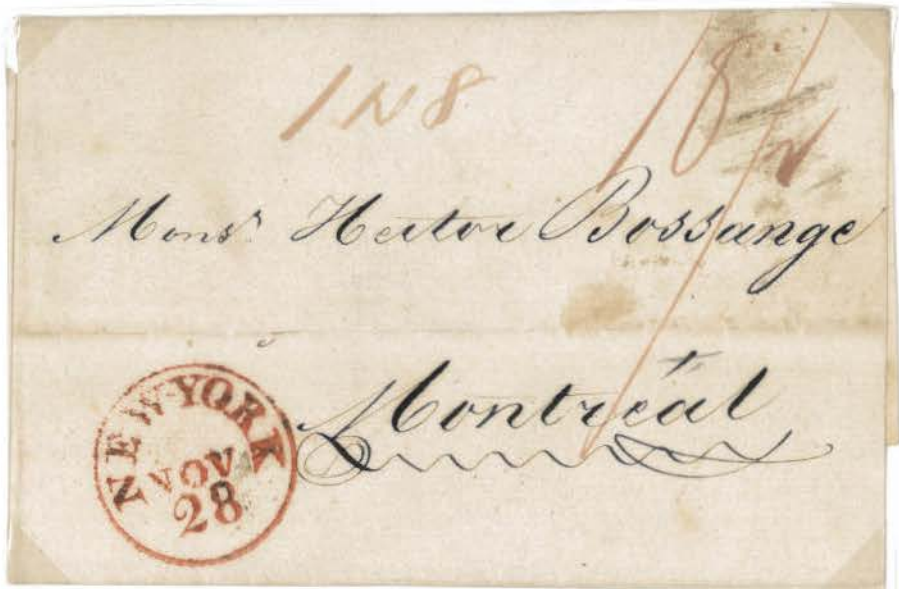 1 N 8
18 1/2
Monsr. Hector Bossange
Montréal
NEW-YORK
NOV
28